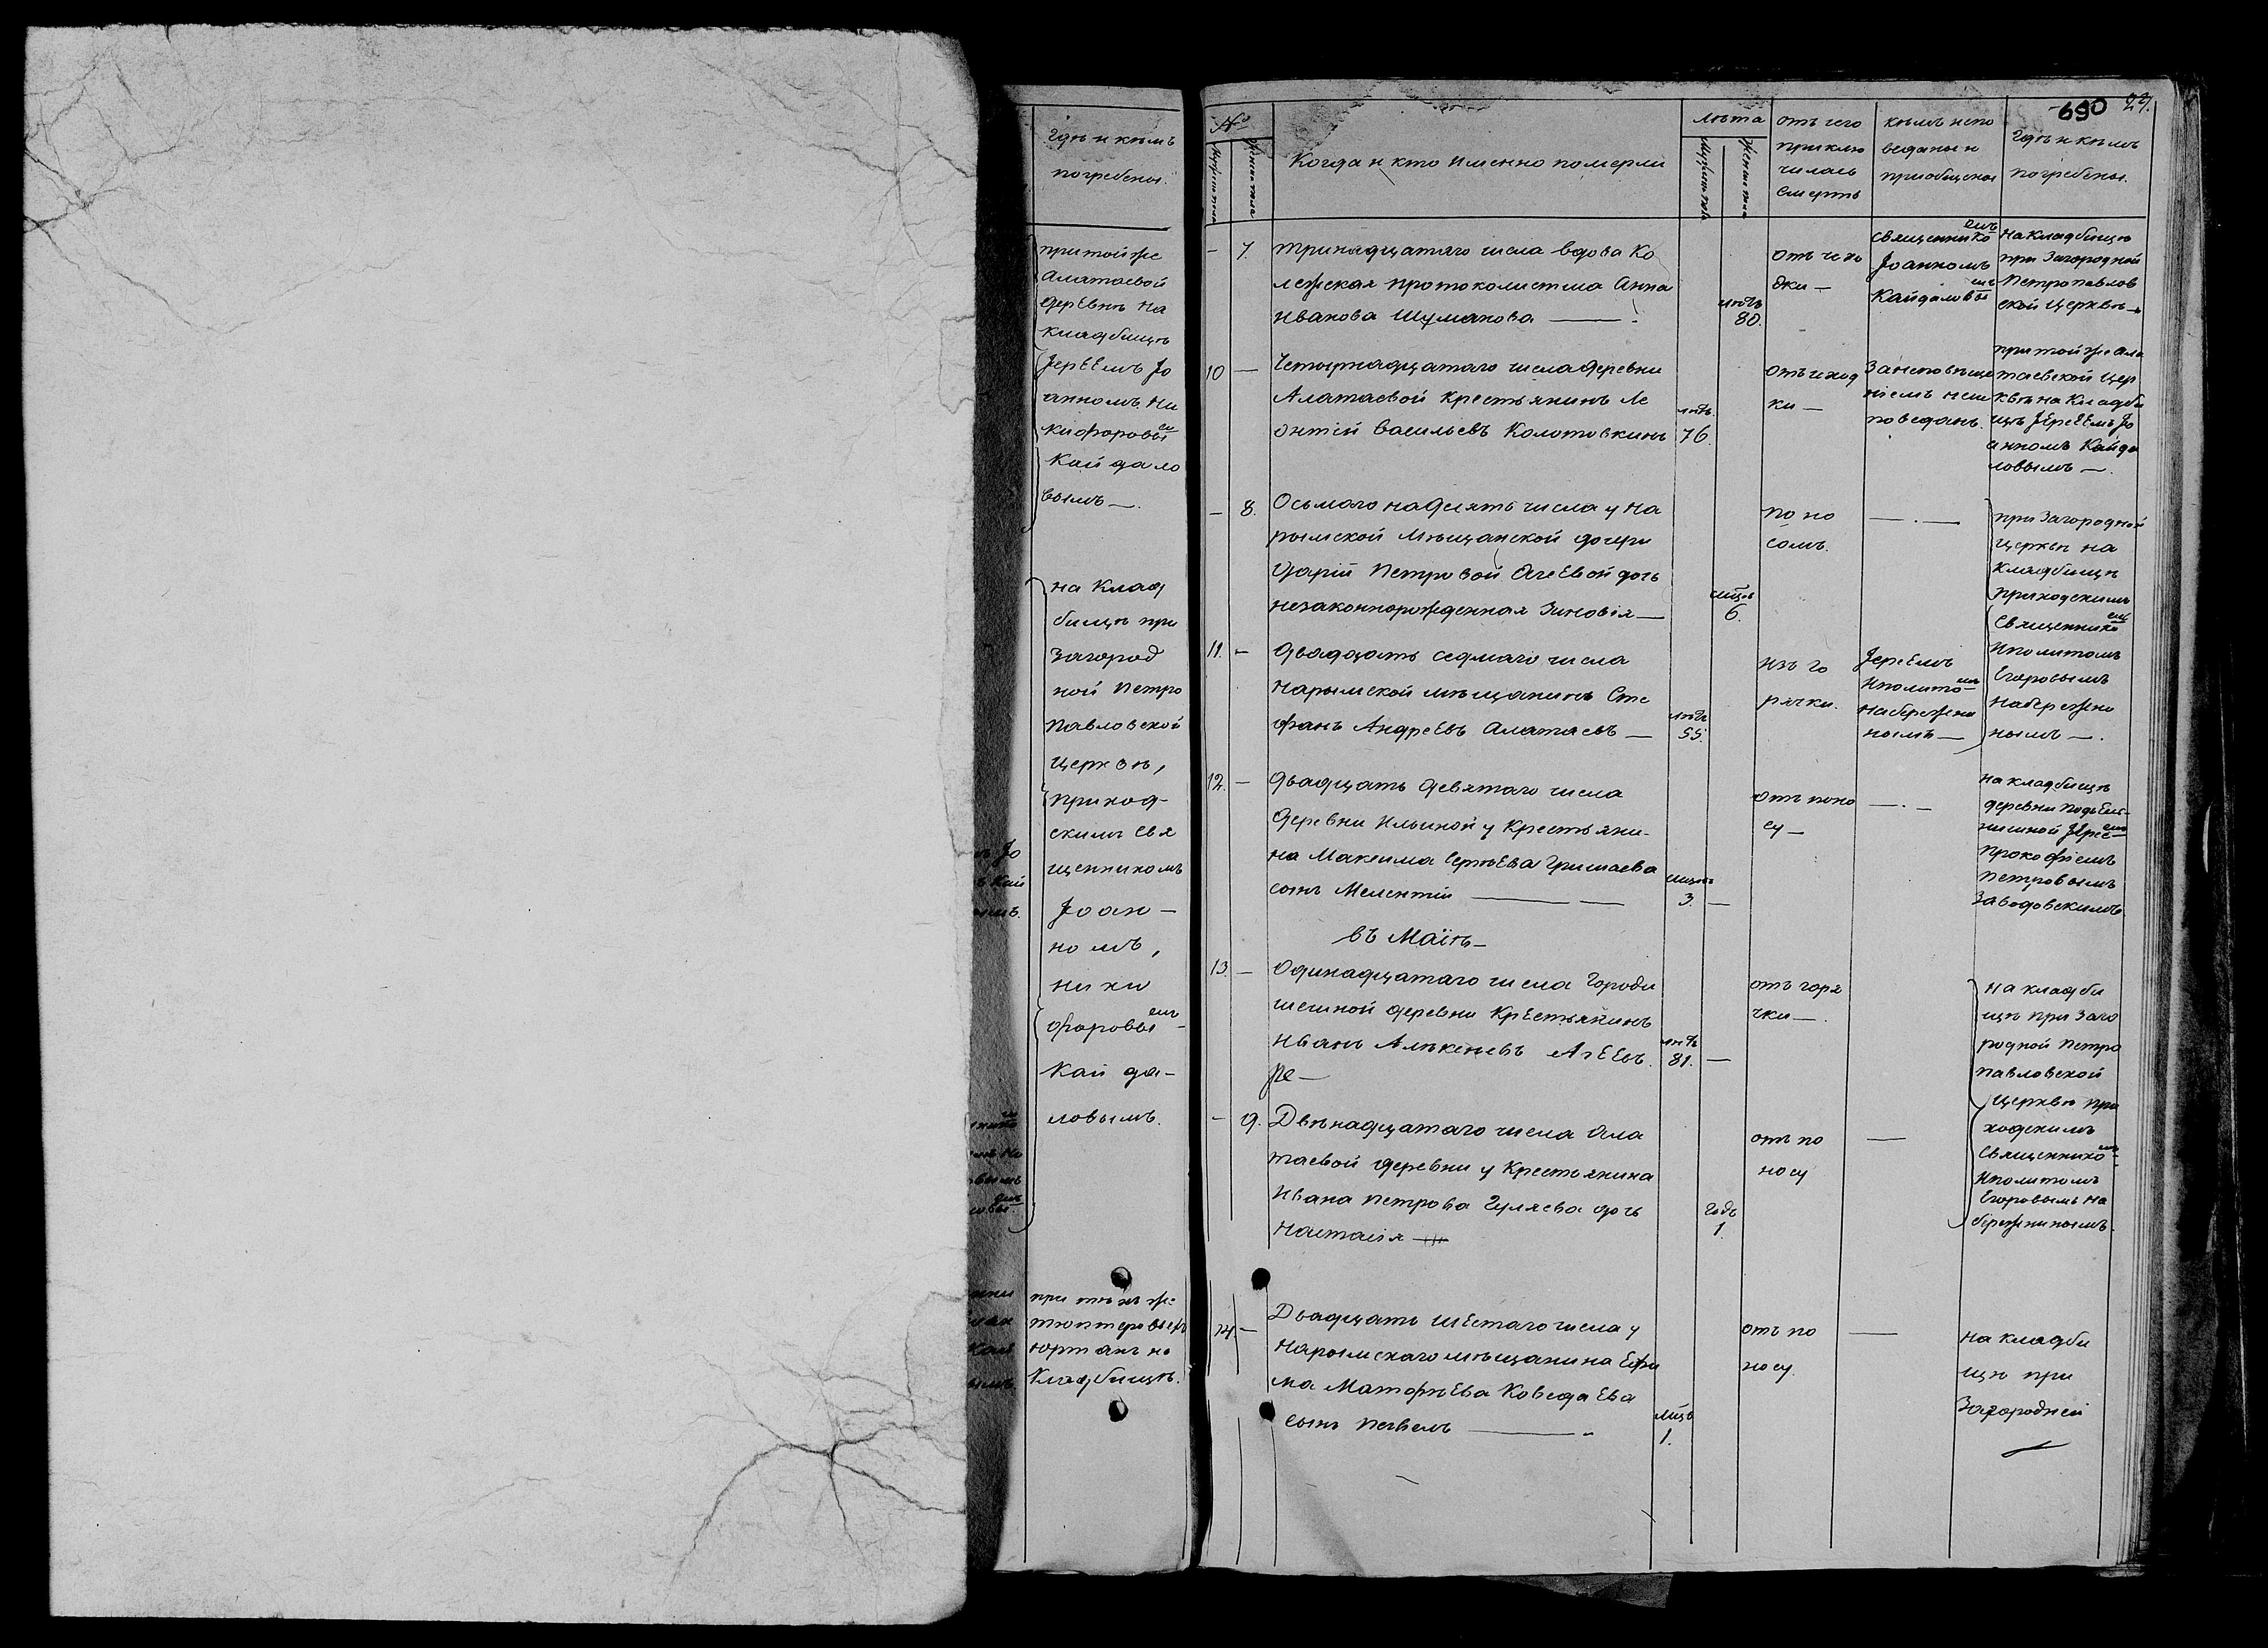 Гдѣ и кѣмъ
погребены.
при той же
Алатаевой
деревнѣ на
кладбищѣ
Іереемъ Іо
анномъ Ни
кифоровы емъ
Кайдало
вымъ —.
на Клад
бищѣ при
Загород
ной Петро
Павловской
церквѣ,
приход-
скимъ Свя
щенникомъ
Іоан-
номъ,
Ники
форовы емъ
Кайда-
ловымъ.
при тѣхъ же
юртахъ на
Кладбищѣ.
690 23.
№
Мужеска пола
Женска пола
Когда и кто именно померли
Лѣта
Мужеска пола
Женска пола
отъ чего
приклю
чилась
смерть
кѣмъ испо
веданы и
приобщены
Гдѣ и кѣмъ
погребены.
— 7. тринадцатаго числа вдова Ко
лежская протоколистша Анна
Иванова Шумакова —
лѣтъ
80.
отъ чехо
дки —
священнико емъ
Іоанномъ
Кайдаловы емъ
на кладбищѣ
при Загородной
Петропавлов
ской церквѣ —
10 — Четырнадцатаго числа деревни
Алатаевой Крестьянинъ Ле
онтій Васильевъ Колотовкинъ
лѣтъ.
76.
отъ чеход
ки —
За неповѣще
ніемъ не ис
поведанъ.
при той же Ала
таевской цер
квѣ на Кладби
щѣ Іереемъ Іо
анномъ Кайда
ловымъ —.
— 8. Осьмаго надесять числа у На
рымской Мѣщанской дочери
Дарій Петровой Агеевой дочь
незаконнорожденная Зиновія —
6.
поно
сомъ.
— . —
при Загородной
церквѣ на
кладбищѣ
приходскимъ
Священнико емъ
Иполитомъ
Егоровымъ
Набережни
нымъ —.
11. — двадцать седмаго числа
Нарымской мѣщанинъ Сте
фанъ Андреевъ Алатаевъ —
лѣтъ
55.
изъ го
рячки.
Іереемъ
Иполито емъ
Набережни
нымъ —
12. — двадцать девятаго числа
деревни Ильиной у Крестьяни-
на Максима Сергѣева Гришаева
сынъ Мелентій —
3. —
отъ поно
су —
— . —
на кладбищѣ
деревни Подъель-
нишной Іерее емъ
Прокофіемъ
Петровымъ
Заводовскимъ
въ Маіѣ —
13. — Одинадцатаго числа Городи
щенской деревни Крестьянинъ
Иванъ Алѣкѣевъ Агеевъ.
лѣтъ
81. —
отъ горя
чки —.
на кладби
щѣ при Заго
родной Петро
павловской
церквѣ при
ходскимъ
Священнико емъ
Иполитомъ
Егоровымъ На
бережнинымъ.
— 9. Двѣнадцатаго числа Ала
таевой деревни у Крестьянина
Ивана Петрова Гуляева дочь
Настасія —
Годъ
1.
отъ по
носу
—
14. — Двадцать шестаго числа у
Нарымскаго мѣщанина Ефи
ма Матофѣева Коведяева
сынъ Павелъ —
1.
отъ по
носу.
—
на кладби
щѣ при
Загородней